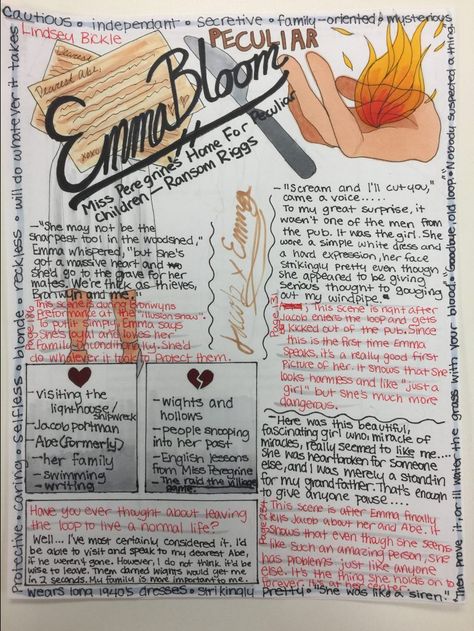 Cautious • independant • secretive • family-oriented • mysterious
Lindsey Bickle
PECULIAR
Dearest
Dearest Abe,
xoxo
Emma Bloom
Miss Peregrine's Home For Peculiar
Children - Ransom Riggs
-"She may not be the
sharpest tool in the woodshed,"
Emma whispered, "but she's
got a massive heart and
she'd go to the grave for her
mates. We're thick as thieves,
Bronwyn and me."
This scene is during Bronwyns
Preformance at the "illusion show".
To put it simply, Emma says
She's loyal and loves her
Family unconditionally. She'd
do whatever it took to protect them.
-"Scream and I'll cut you,"
came a voice.....
To my great surprise, it
wasn't one of the men from
the pub. It was the girl. She
wore a simple white dress and
a hard expression, her face
strikingly pretty even though
she appeared to be giving
serious thought to gouging
out my windpipe.
Page 131
This scene is right after
Jacob enters the loop and gets
kicked out of the pub. Since
this is the first time Emma
Speaks, it's a really good first
Picture of her. It shows that She
looks harmless and like "just a
girl" but she's much more
dangerous.
- visiting the
lighthouse/
shipwreck
- Jacob portman
- Abe (formerly)
- her family
- swimming
- writing
- wights and
hollows
- people snooping
into her past
- English lessons
from Miss Peregrine
- The raid the village
game.
- Here was this beautiful,
fascinating girl who, miracle of
miracles, really seemed to like me....
She was heartbroken for someone
else, and I was merely a standin
for my grandfather. That's enough
to give anyone pause....
Page 234
This scene is after Emma finally
tells Jacob about her and Abe. It
Shows that even though she seems
like Such an amazing person, she
has problems just like anyone
else. It's the thing she holds on to
forever. It's at her center.
Have you ever thought about leaving
the loop to live a normal life?
Well... I've most certainly considered it. I'd
be able to visit and speak to my dearest Abe,
if he weren't gone. However, I do not think it'd be
wise to leave. Them darned wights would get me
in 2 seconds. My family is more important to me.
Protective • caring • selfless • blonde • reckless • will do whatever it takes
wears long 1940's dresses • strikingly pretty • "She was like a siren."